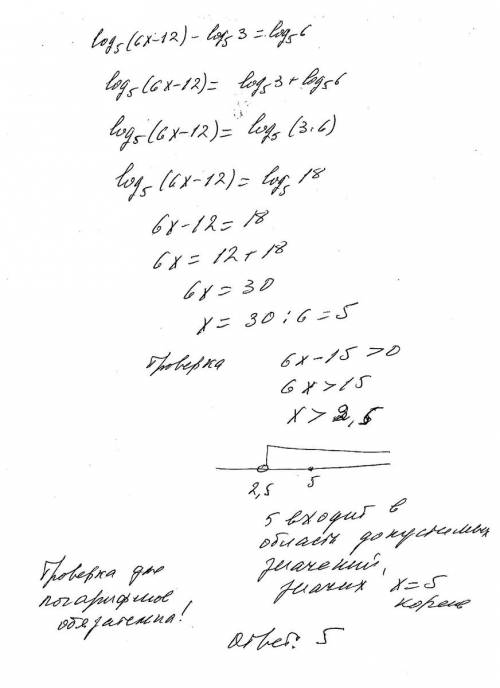 log₅(6x-12) - log₅3 = log₅6
log₅(6x-12) = log₅3 + log₅6
log₅(6x-12) = log₅(3·6)
log₅(6x-12) = log₅18
6x-12 = 18
6x = 12+18
6x = 30
x = 30:6 = 5
Проверка
6x-15>0
6x>15
x>2,5
2,5 5
5 входит в
область допустимых
значений,
значит x=5
корень
Проверка для
логарифмов
обязательна!
Ответ: 5